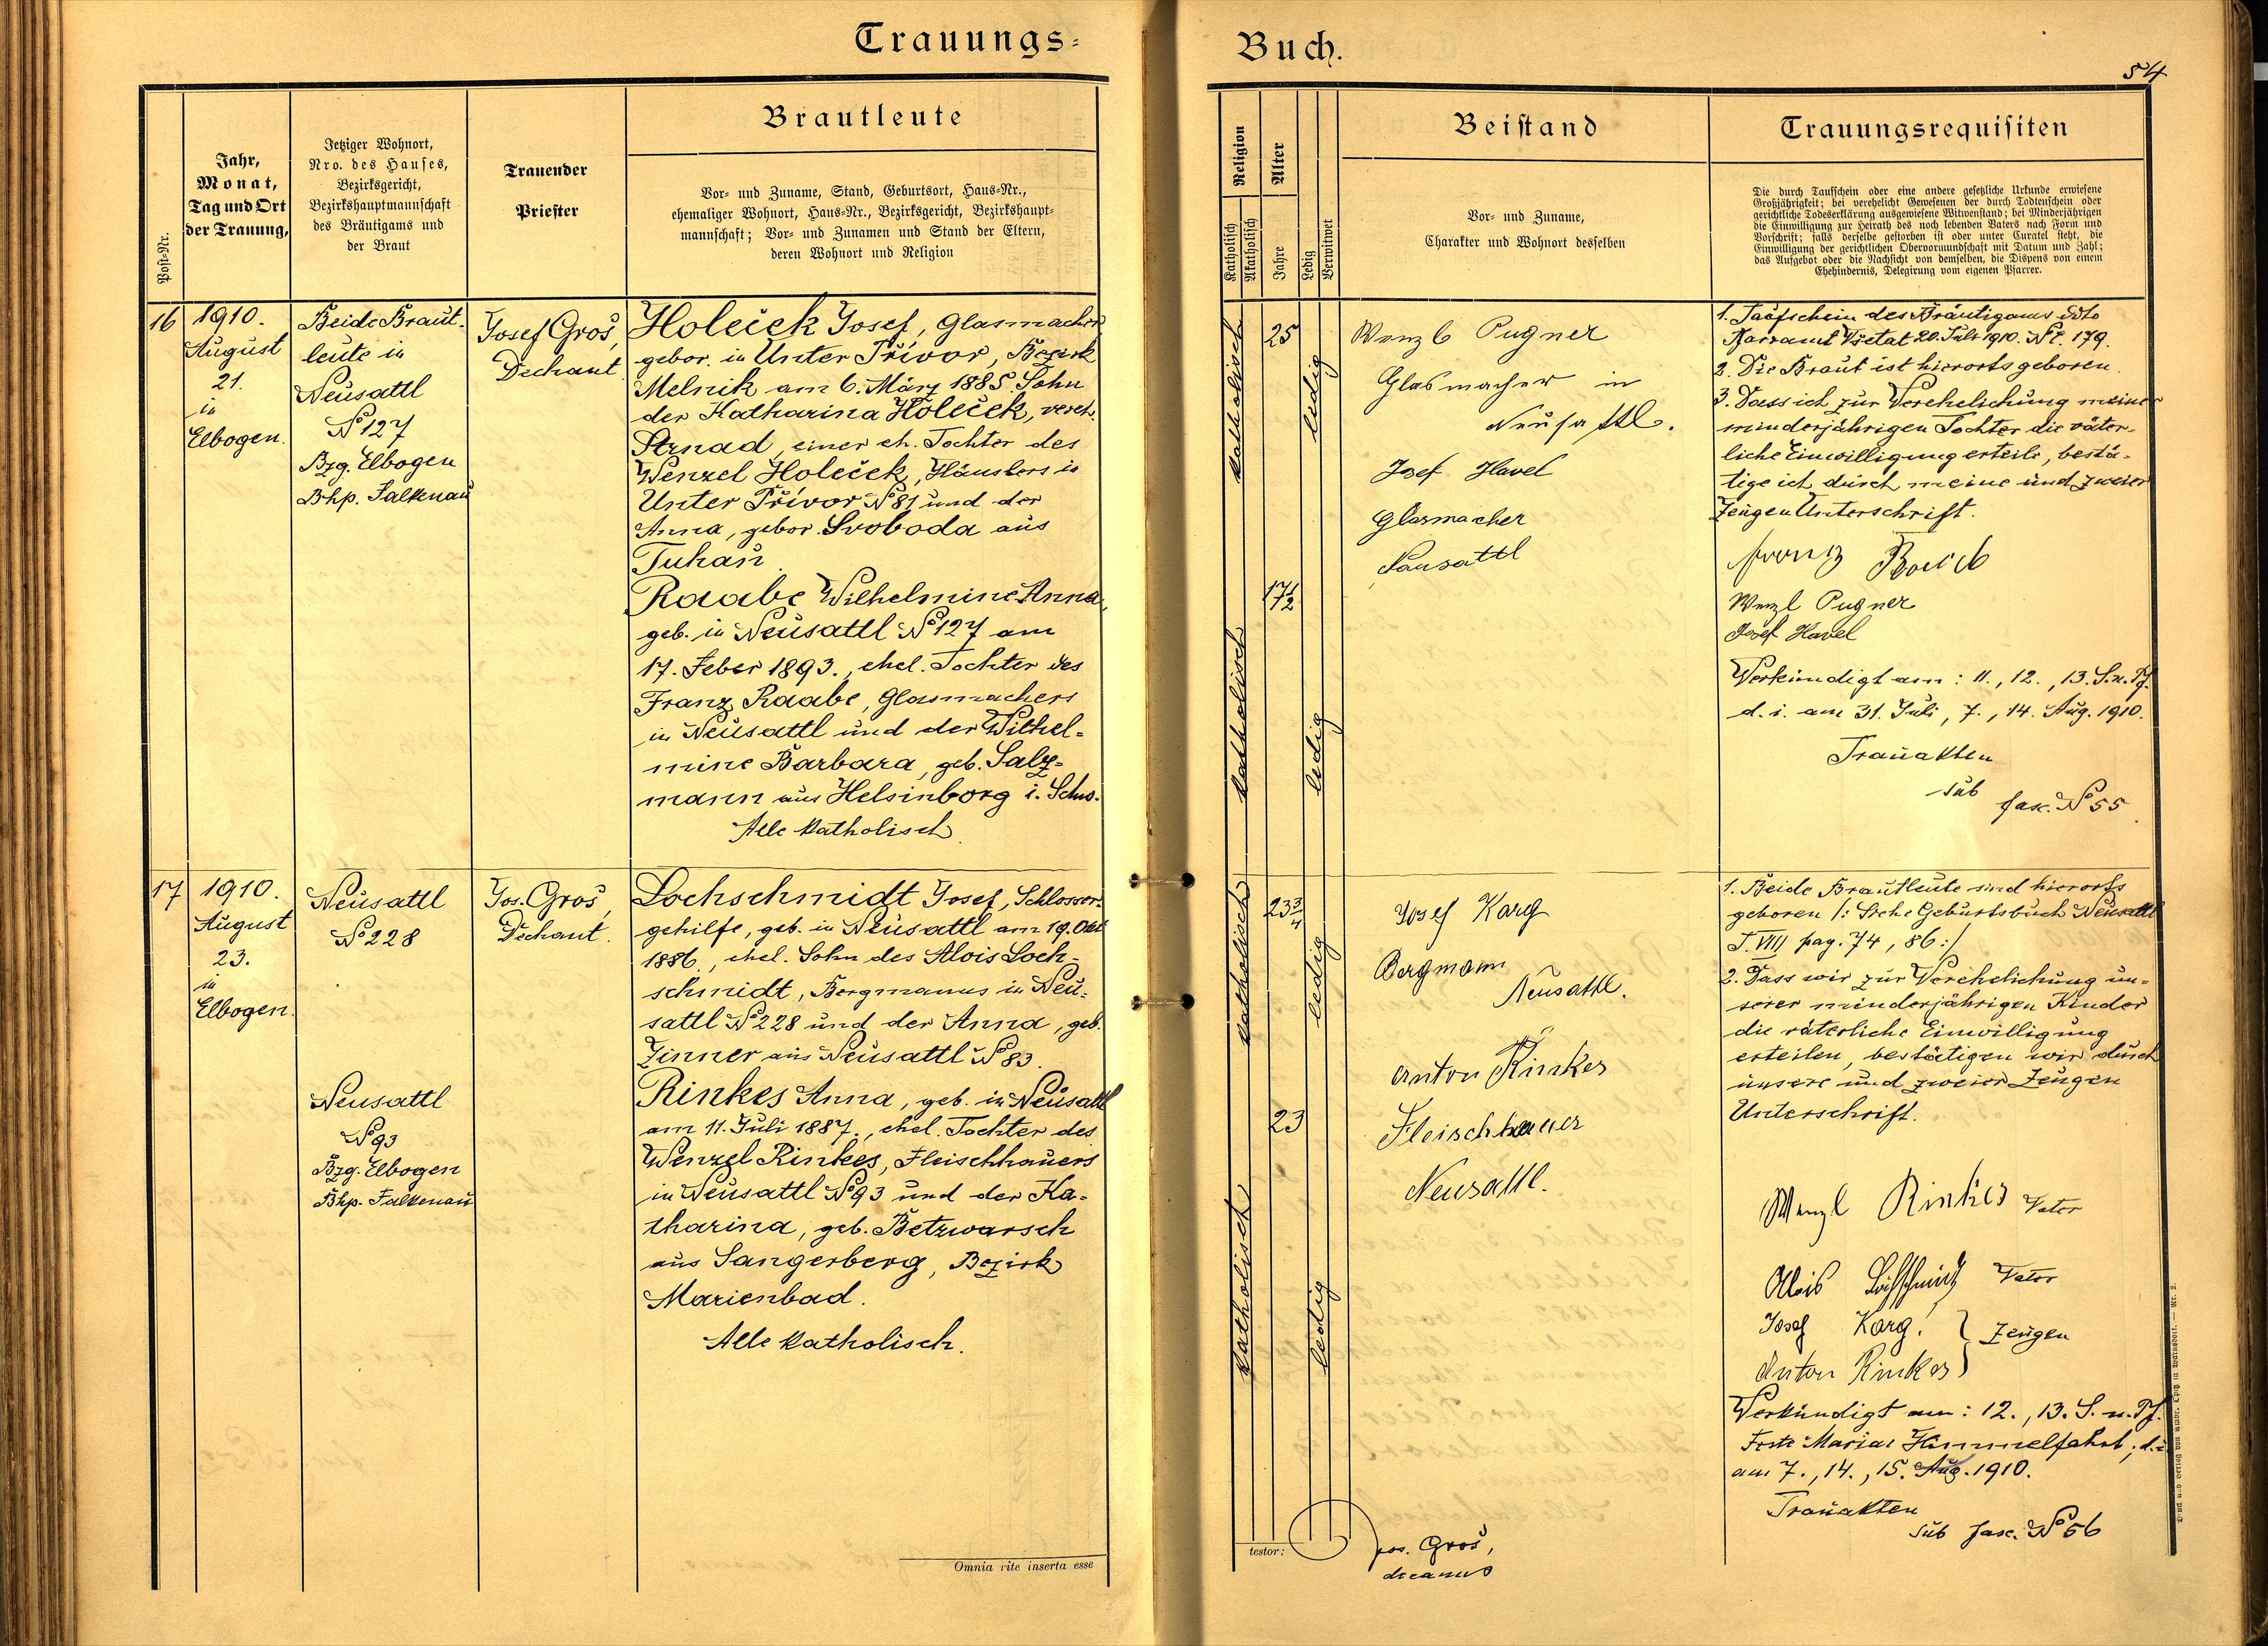 Trauungs-
Buch.
54
Post-Nr.
Jahr,
Monat,
Tag und Ort
der Trauung,
Jetziger Wohnort,
Nro. des Hauses,
Bezirksgericht,
Bezirkshauptmannschaft
des Bräutigams und
der Braut
Trauender
Priester
Brautleute
Vor- und Zuname, Stand, Geburtsort, Haus-Nr.,
ehemaliger Wohnort, Haus-Nr., Bezirksgericht, Bezirkshaupt-
mannschaft; Vor- und Zunamen und Stand der Eltern,
deren Wohnort und Religion
Religion
Katholisch
Akatholisch
Alter
Jahre
Ledig
Verwitwet
Beistand
Vor- und Zuname,
Charakter und Wohnort desselben
Trauungsrequisiten
Die durch Taufschein oder eine andere gesetzliche Urkunde erwiesene
Großjährigkeit; bei verehelicht Gewesenen der durch Todtenschein oder
gerichtliche Todeserklärung ausgewiesene Witwenstand; bei Minderjährigen
die Einwilligung zur Heirath des noch lebenden Vaters nach Form und
Vorschrift; falls derselbe gestorben ist oder unter Curatel steht, die
Einwilligung der gerichtlichen Obervormundschaft mit Datum und Zahl;
das Aufgebot oder die Nachsicht von demselben, die Dispens von einem
Ehehindernis, Delegirung vom eigenen Pfarrer.
16
1910.
August
21.
in
Elbogen.
Beide Braut-
leute in
Neusattl
No 127
Bzg. Elbogen
Bhp. Falkenau
Josef Groš,
Dechant
Holeček Josef, Glasmacher
gebor. in Unter Přívor, Bezirk
Melnik am 6. März 1885 Sohn
der Katharina Holeček, vereh.
Strnad, einer eh. Tochter des
Wenzel Holeček, Häuslers in
Unter Přívor No 81 und der
Anna, gebor. Svoboda aus
Tuhaň.
Raabe Wilhelmine Anna,
geb. in Neusattl No 127 am
17. Feber 1893., ehel. Tochter des
Franz Raabe, Glasmachers
in Neusattl und der Wilhel-
mine Barbara, geb. Salz-
mann aus Helsinborg i. Schw.
Alle katholisch
katholisch
25
ledig
17 1/2
katholisch
ledig
Wenzl Pugner
Glasmacher in
Neusattl.
Josef Havel
Glasmacher
Neusattl
1. Taufschein des Bräutigams ddto
Pfarramt Všetat 20. Juli 1910. Nr. 179.
2. Die Braut ist hierorts geboren.
3. Dass ich zur Verehelichung meiner
minderjährigen Tochter die väter-
liche Einwilligung erteile, bestä-
tige ich durch meine und zweier
Zeugen Unterschrift.
Franz
Wenzl Pugner
Josef Havel
Verkündigt am: 11., 12., 13. S. n. Pf.
d. i. am 31. Juli, 7., 14. Aug. 1910.
Trauakten
sub
fasc. No 55
17
1910.
August
23.
in
Elbogen.
Neusattl
No 228
Neusattl
No 93
Bzg. Elbogen
Bhp. Falkenau
Jos. Groš,
Dechant.
Lochschmidt Josef, Schlosser-
gehilfe, geb. in Neusattl am 19. Okt
1886., ehel. Sohn des Alois Loch-
schmidt, Bergmanns in Neu-
sattl No 228 und der Anna, geb.
Zinner aus Neusattl No 83.
Rinkes Anna, geb. in Neusattl
am 11. Juli 1887., ehel. Tochter des
Wenzel Rinkes, Fleischhauers
in Neusattl No 93 und der Ka-
tharina, geb. Betzwarsch
aus Sangerberg, Bezirk
Marienbad.
Alle katholisch.
katholisch
23 3/4
ledig
23
katholisch
ledig
Josef Karg
Bergmann
Neusattl.
Anton Rinkes
Fleischhauer
Neusattl.
1. Beide Brautleute sind hierorts
geboren /: Siehe Geburtsbuch Neusattl
T. VIII pag. 74, 86 :/
2. Dass wir zur Verehelichung un-
serer minderjährigen Kinder
die väterliche Einwilligung
erteilen, bestätigen wir durch
unsere und zweier Zeugen
Unterschrift.
Wenzl Rinkes Vater
Alois Lochschmidt Vater
Josef Karg } Zeugen
Anton Rinkes
Verkündigt am: 12., 13. S. n. Pf.
Feste Mariae Himmelfahrt; d. i.
am 7., 14., 15. Aug. 1910.
Trauakten
sub fasc. No 56
Omnia rite inserta esse
testor:
Jos. Groš,
decanus